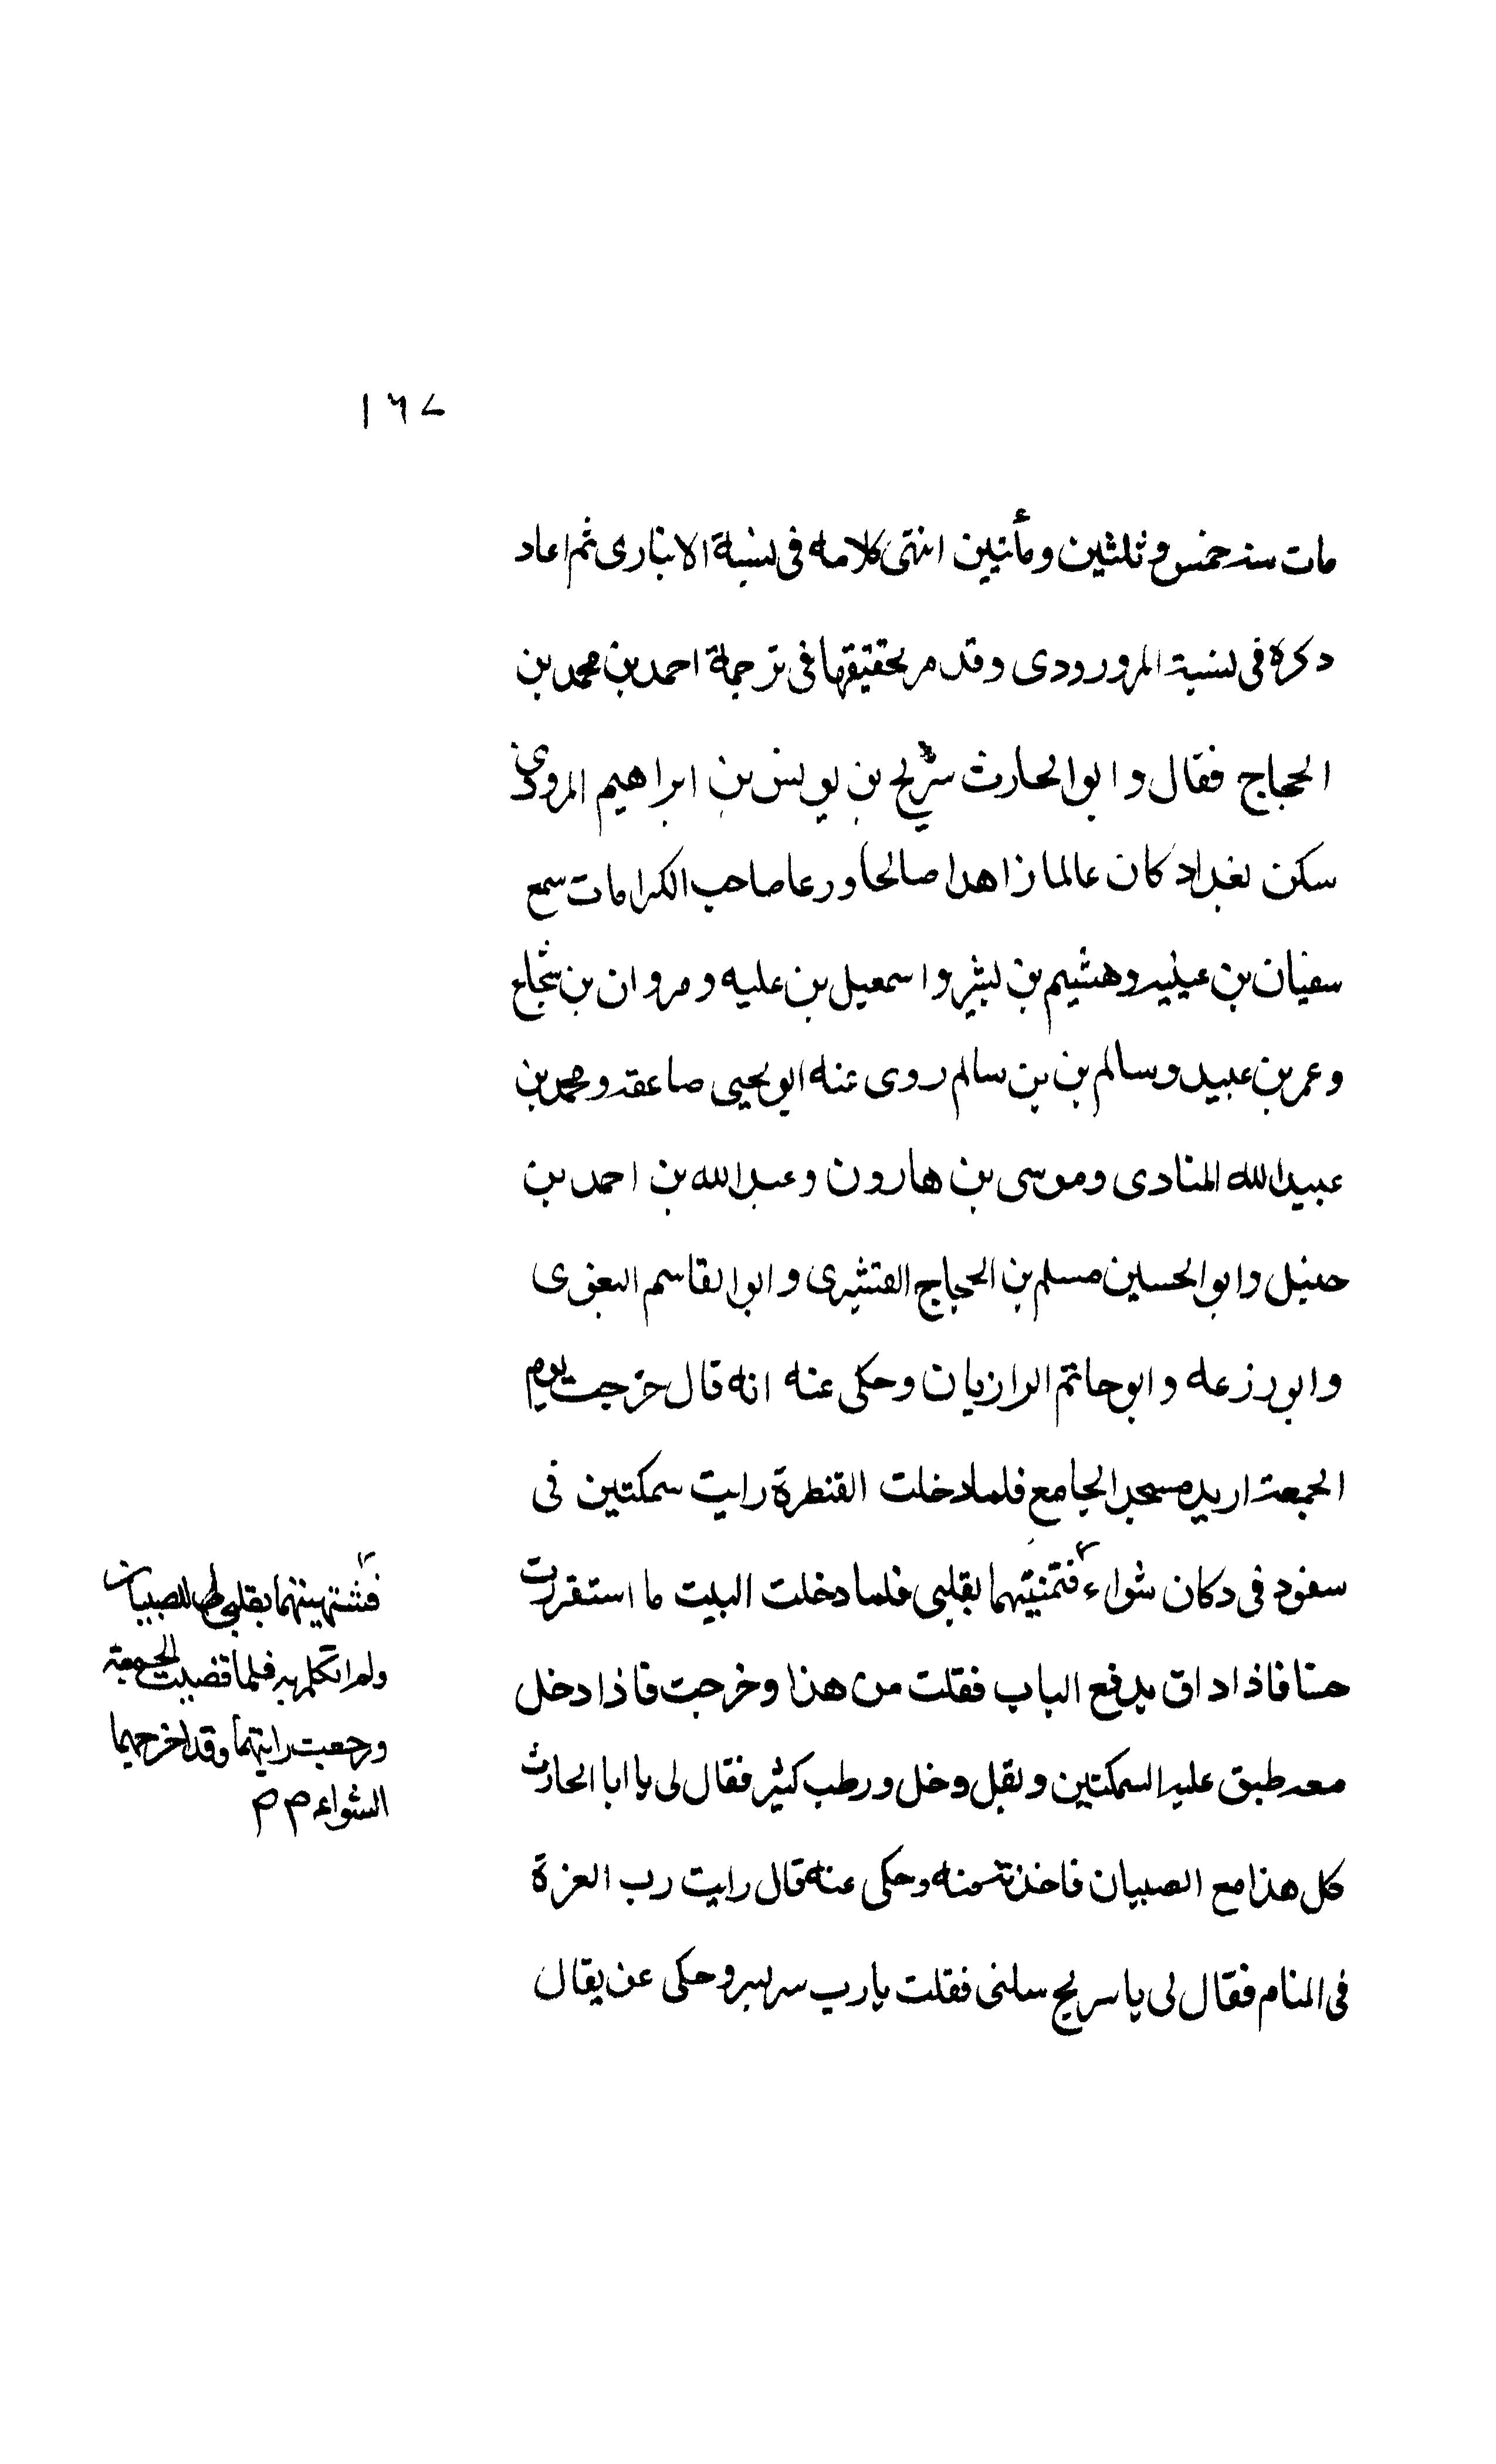 ١٦٧
مات سنة خمس وثلثين ومأتين انتهى كلامه فى نسبة الانبارى ثم اعاد
ذكره فى نسبة المرورودى وقد مر تحقيقها فى ترجمة احمد بن محمد بن
الحجاج فقال وابو الحارث سريج بن يونس بن ابراهيم المروذى
سكن بغداد كان عالما زاهدا صالحا ورعا صاحب الكرامات سمع
سفيان بن عيينه وهشيم بن بشير واسمعيل بن عليه ومروان بن شجاع
وعمر بن عبيد وسالم بن بن سالم روى عنه ابو يحيى صاعقه ومحمد بن
عبيد الله المنادى وموسى بن هارون وعبد الله بن احمد بن
حنبل وابو الحسين مسلم بن الحجاج القشيرى وابو القاسم البغوى
وابو رزعه وابو حاتم الرازيان وحكى عنه انه قال خرجت يوم
الجمعة اريد مسجد الجامع فلما دخلت القنطرة رايت سمكتين فى
سفود فى دكان شواء فتمنيتهما بقلبى فلما دخلت البيت ما استقررت
حتا فاذا داق يدفع الباب فقلت من هذا وخرجت فاذا دخل
معه طبق عليه السمكتين وبقل وخل ورطب كثير فقال لى يا ابا الحارث
كل هذا مع الصبيان فاخذته منه وحكى عنه قال رايت رب العزة
فى المنام فقال لى يا سريج سلنى فقلت يا رب سر بسر وحكى عن يقال
فشتهيتهما بقلبى للصبيان
ولم اتكلم به فلما قضيت الجمعة
ورجعت رايتهما وقد اخرجهما
الشواء م م